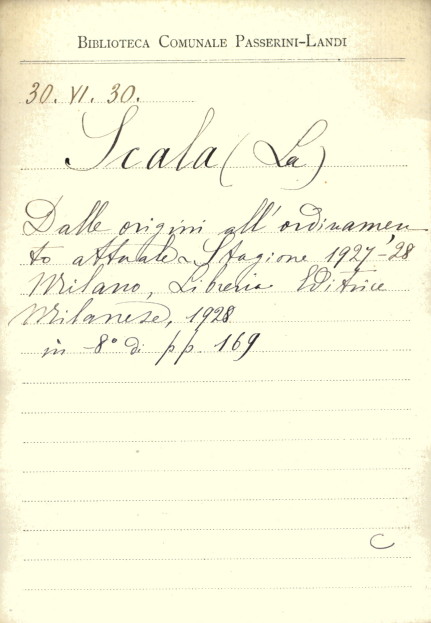 BIBLIOTECA COMUNALE PASSERINI-LANDI
30. VI. 30.
Scala (La)
Dalle origini all'ordinamen
to attuale - Stagione 1927-28
Milano, Libreria Editrice
Milanese, 1928
in -8° di pp. 169
C